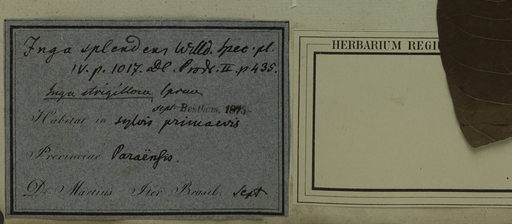 Inga splendens Willd. Spec. pl.
IV. p. 1017. DC. Prodr. II. p 435.
Inga strigillosa Spruce
sept. Bentham. 1875
Habitat in sylvis primaevis
Provinciae Paraënsis.
Dr. Martius Iter Brasil. Sept
HERBARIUM REGI